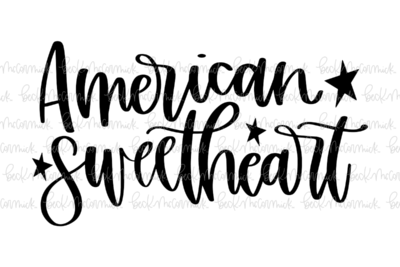 American
sweetheart